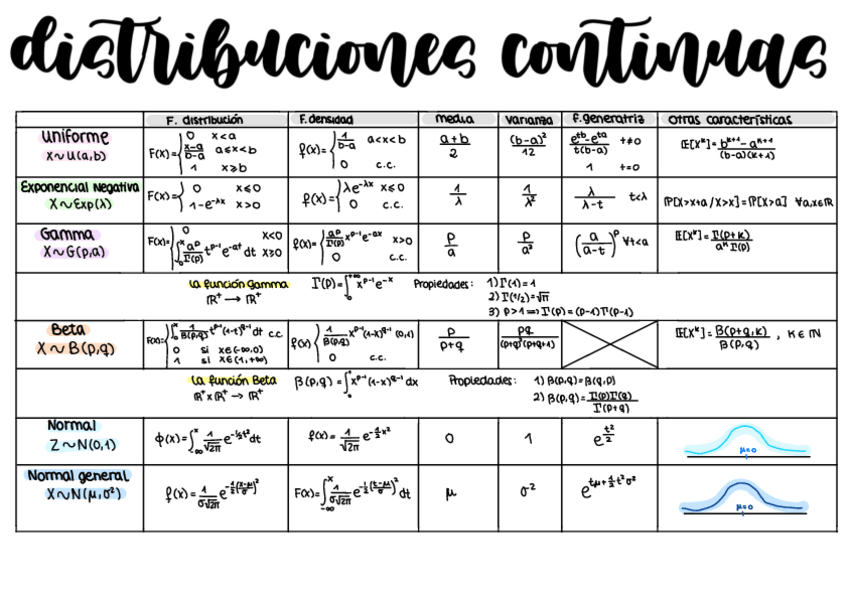 distribuciones continuas
F. distribución F. densidad media varianza F. generatriz otras características
Uniforme
X~U(a,b)
F(x)={ 0 x<a
x-a/b-a a≤x<b
1 x≥b
f(x)={ 1/b-a a<x<b
0 c.c.
a+b/2
(b-a)²/12
e^tb-e^ta/t(b-a) t≠0
1 t=0
E[X^k]=b^k+1-a^k+1/(b-a)(k+1)
Exponencial Negativa
X~Exp(λ)
F(x)={ 0 x≤0
1-e^-λx x>0
f(x)={ λe^-λx x≤0
0 c.c.
1/λ
1/λ²
λ/λ-t t<λ
P[X>x+a/X>x]=P[X>a] ∀a,x∈R
Gamma
X~G(p,a)
F(x)={ 0 x<0
∫₀^x a^p/Γ(p) t^p-1 e^-at dt x≥0
f(x)={ a^p/Γ(p) x^p-1 e^-ax x>0
0 c.c.
p/a
p/a²
(a/a-t)^p ∀t<a
E[X^k]=Γ(p+k)/a^k Γ(p)
La función Gamma Γ(p)=∫₀^+∞ x^p-1 e^-x Propiedades: 1) Γ(1)=1
R⁺ → R⁺ 2) Γ(1/2)=√π
3) p>1 ⟹ Γ(p)=(p-1)Γ(p-1)
Beta
X~B(p,q)
F(x)={ ∫₀^x 1/B(p,q) t^p-1 (1-t)^q-1 dt c.c.
0 si x∈(-∞,0)
1 si x∈(1,+∞)
f(x){ 1/B(p,q) x^p-1 (1-x)^q-1 (0,1)
0 c.c.
p/p+q
pq/(p+q)²(p+q+1)
E[X^k]=B(p+q,k)/B(p,q) , k∈N
La función Beta B(p,q)=∫₀^1 x^p-1 (1-x)^q-1 dx Propiedades: 1) B(p,q)=B(q,p)
R⁺xR⁺ → R⁺ 2) B(p,q)=Γ(p)Γ(q)/Γ(p+q)
Normal
Z~N(0,1)
Φ(x)=∫-∞^x 1/√2π e^-1/2t² dt
f(x)=1/√2π e^-1/2x²
0
1
e^t²/2
μ=0
Normal general
X~N(μ,σ²)
f(x)=1/σ√2π e^-1/2(x-μ/σ)²
F(x)=∫-∞^x 1/σ√2π e^-1/2(t-μ/σ)² dt
μ
σ²
e^tμ+1/2t²σ²
μ=0